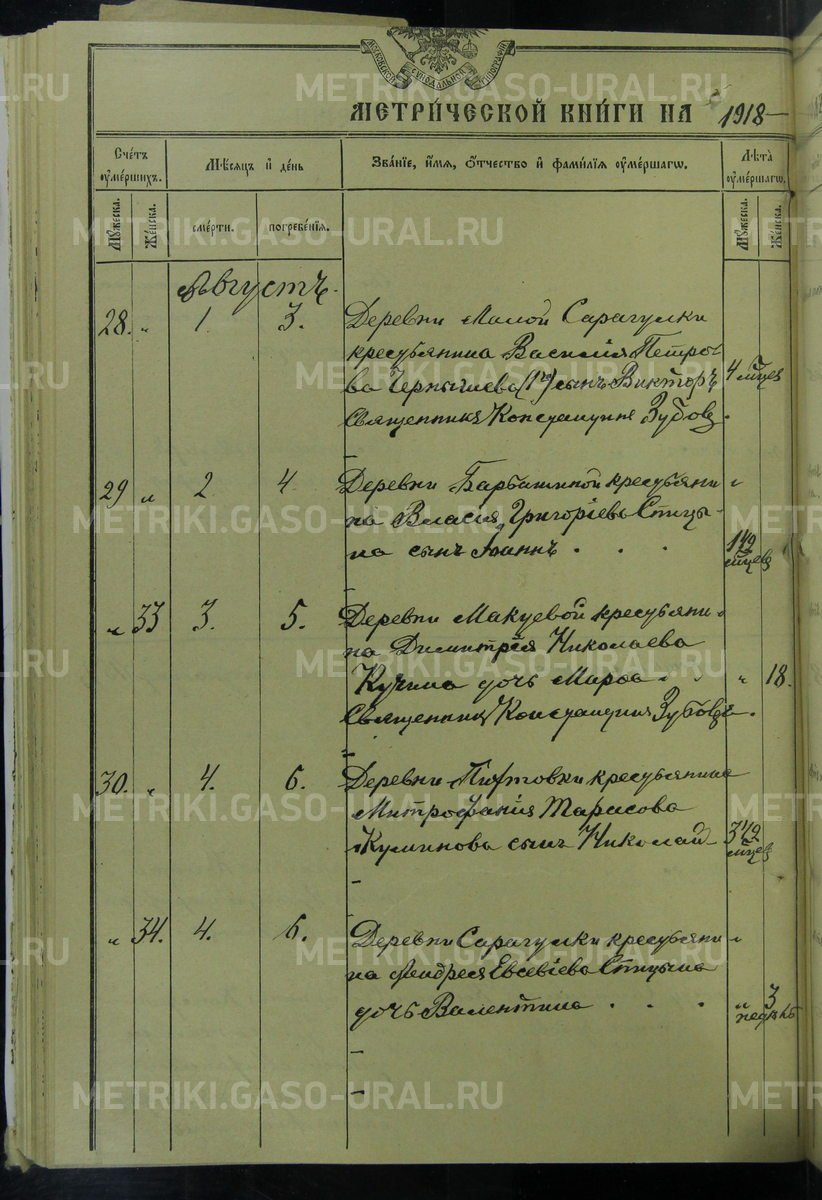 МОСКОВСКОЙ СѴНОДАЛЬНОЙ ТИПОГРАФІИ
МЕТРИ́ЧЕСКОЙ КНИ́ГИ НА 1918
Сче́тъ ᲂу҆ме́ршихъ.
Мѣ́сяцъ и҆ де́нь
Зва́нїе, и҆́мя, ѻ҆́тчество и҆ фами́лїя ᲂу҆ме́ршагѡ.
Лѣ́та ᲂу҆ме́ршагѡ.
Мꙋ́жеска.
Же́нска.
сме́рти.
погребе́нїѧ.
Мꙋ́жеска.
Же́нска.
Августъ.
28. „ 1. 3. Деревни Малой Сарагулки
крестьянина Василія Петро-
ва Чернышева (1го) сынъ Викторъ 4 м̃цея
Священникъ Константинъ Зубовъ.
29 „ 2 4. Деревни Барбашиной крестьяни-
на Власія Григоріева Спицы-
на сынъ Іоаннъ . . . 1 1/2 м̃цев
„ 33 3. 5. Деревни Макуевой крестьяни-
на Димитрія Николаева
Кучина дочь Марѳа . . „ 18.
Священникъ Константинъ Зубовъ.
30. „ 4. 6. Деревни крестьянина
Митрофанія Тарасова
Куминова сынъ Николай 3 1/2 м̃цев
„ 34. 4. 6. Деревни Сарагулки крестьяни-
на Андрея Евсевіева Спицына
дочь Валентина . . . „ 3 недѣль
METRIKI.GASO-URAL.RU